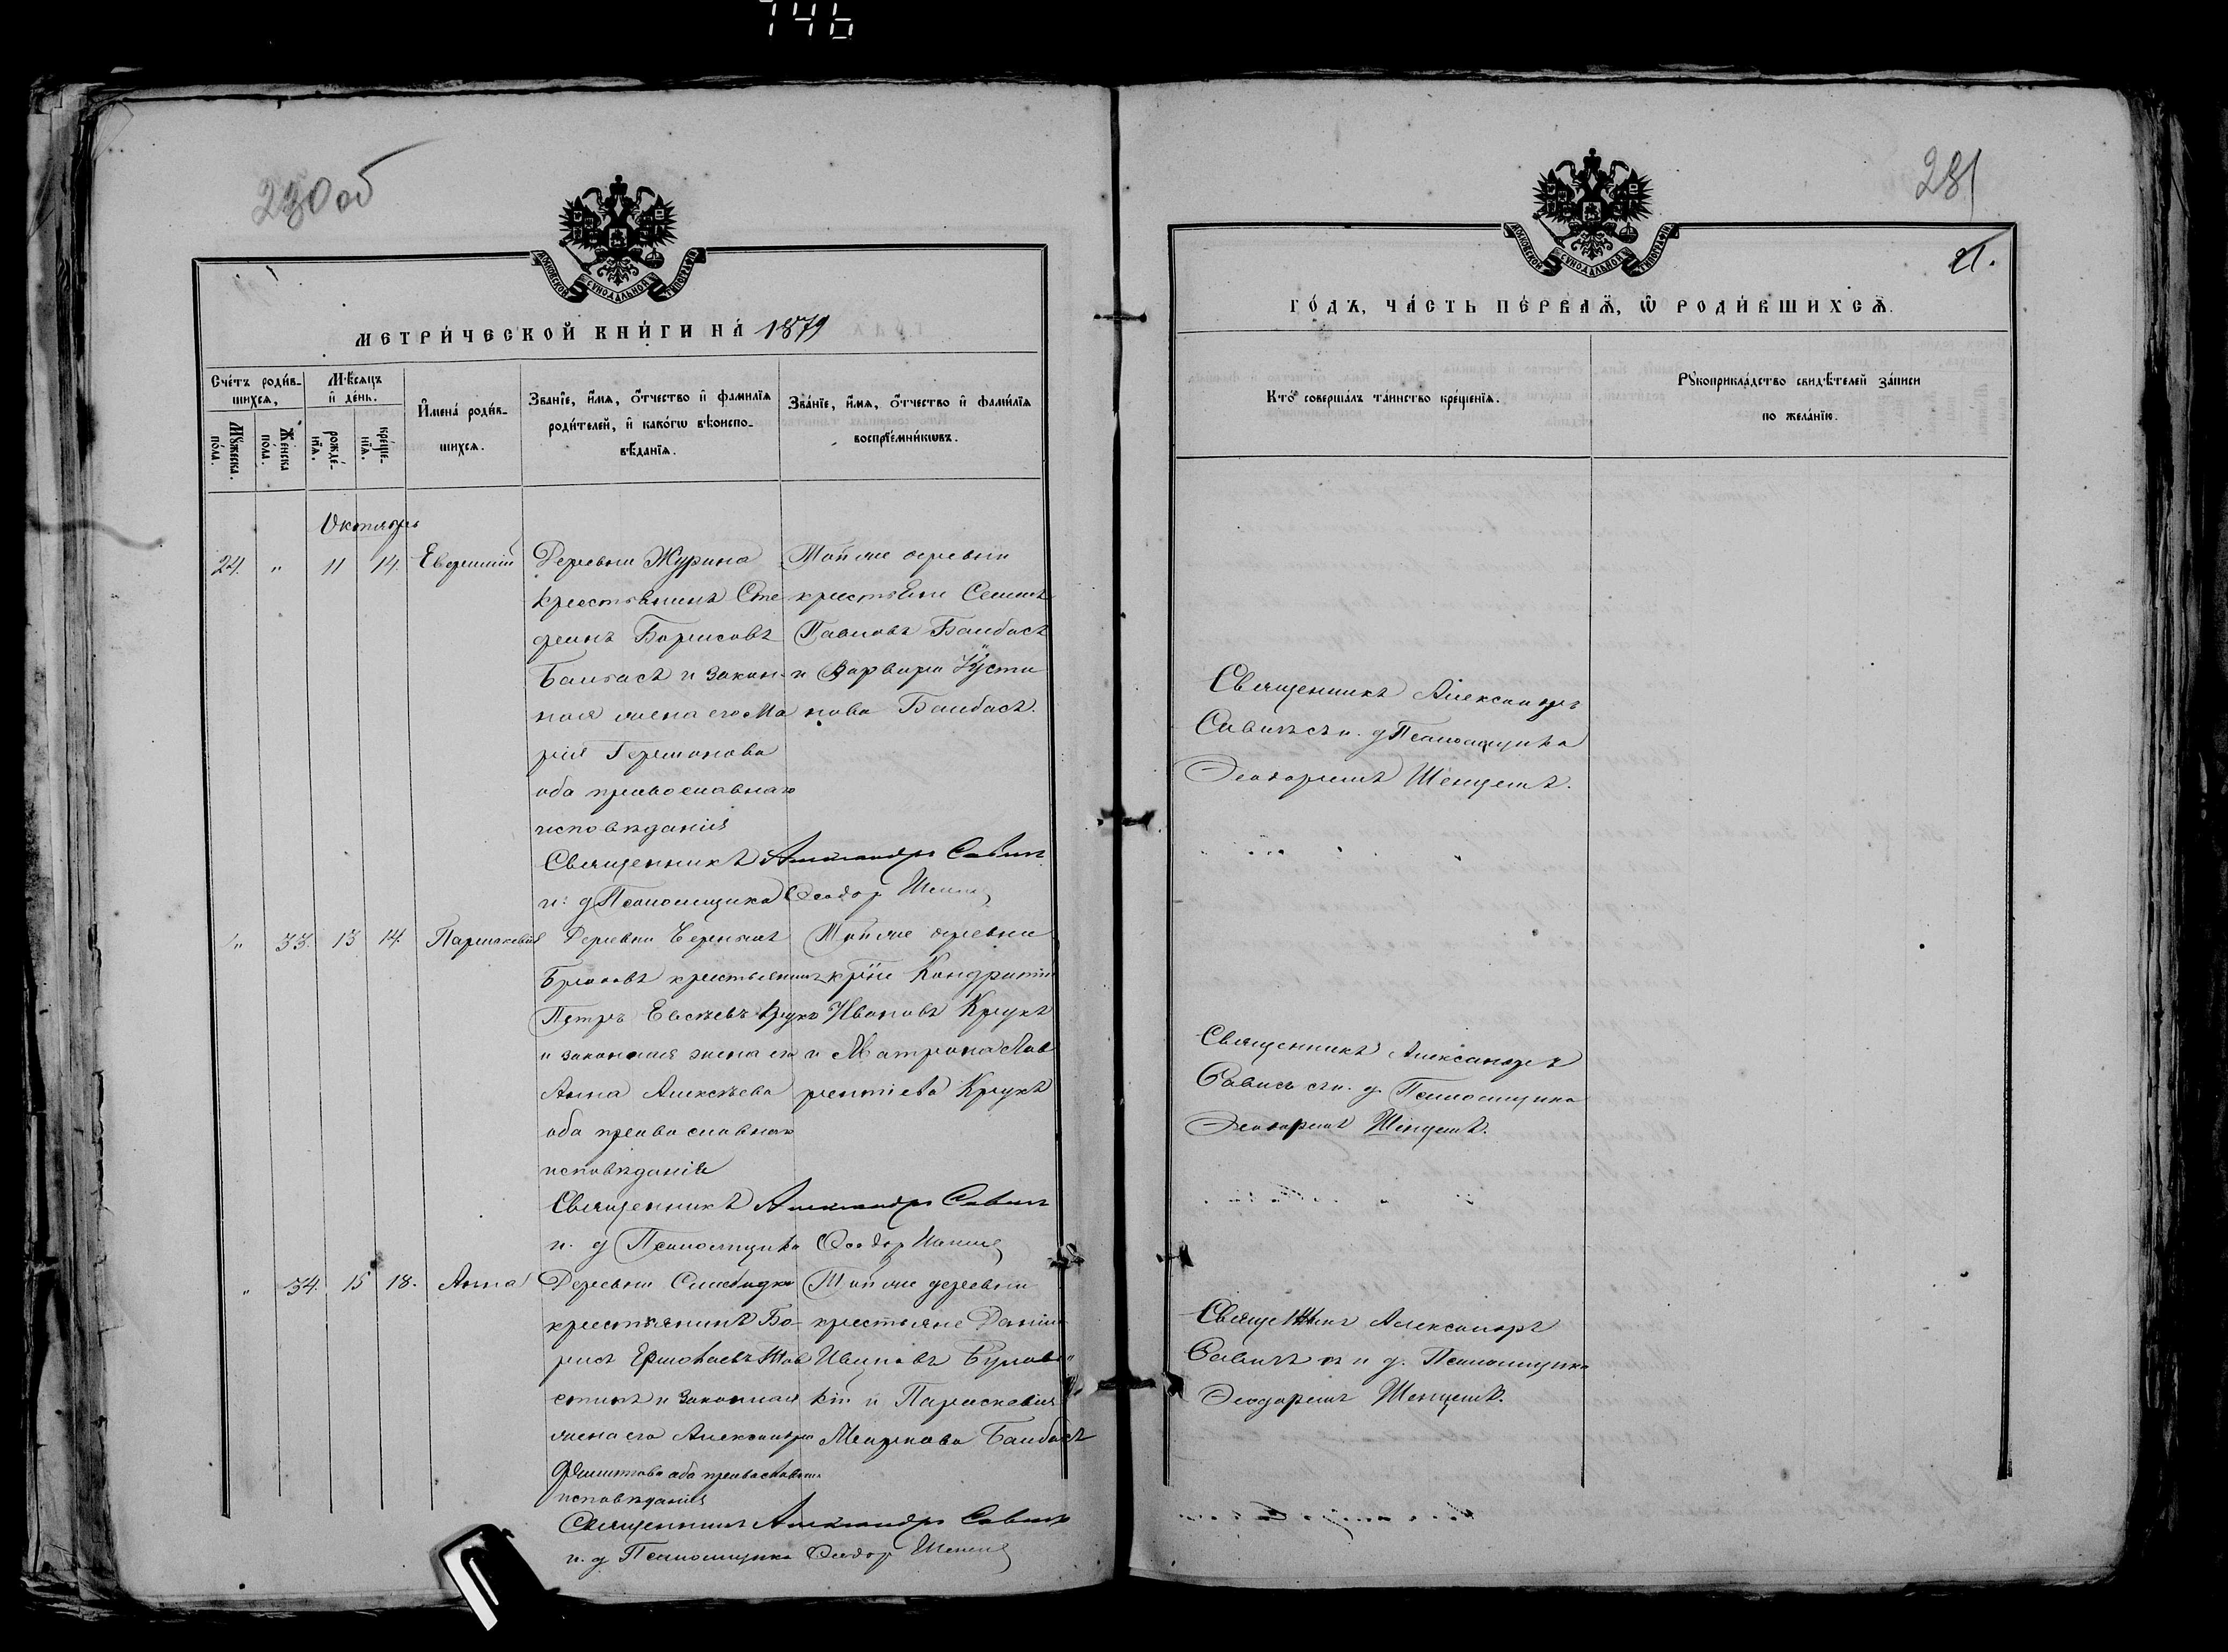 746
280 об
МОСКОВСКОЙ СѴНОДАЛЬНОЙ ТИПОГРАФІИ
МЕТРИ́ЧЕСКОЙ КНИ́ГИ НА́ 1879
Сче́тъ роди́в-
шихся,
Мѣ́сяцъ
и҆ де́нь.
Мꙋ́жеска
по́ла.
Же́нска
по́ла.
рожде́-
нїѧ.
креще́-
нїѧ.
И҆мена̀ роди́в-
шихсѧ.
Зва́нїе, и҆́мѧ, ѻ҆́тчество и҆ фами́лїѧ
роди́телей, и҆ како́гѡ вѣ́роиспо-
вѣ́данїѧ.
Зва́нїе, и҆́мѧ, ѻ҆́тчество и҆ фами́лїѧ
воспрїе́мникѡвъ.
Октябрь
24. " 11 14.
Деревни Журина
крестьянинъ Сте
фанъ Борисовъ
Баибасъ и закон-
ная жена его Ма
рія Германова
оба православнаго
исповѣданія
Тойже деревни
крестьяни
Павловъ Баибасъ
и Варвара Усти
нова Баибасъ.
Священникъ Александръ Савичъ
и: д Псаломщика Ѳеодор
" 33. 13 14. Параскевія
Деревни
крестьянинъ
Петръ Евсѣевъ Крукъ
и законная жена его
Анна Алексѣева
оба православнаго
исповѣданія
Тойже деревни
кр̃не Кондратій
Ивановъ Крукъ
и Матрона Лав
рентіева Крукъ
Священникъ Александръ Савичъ
и. д Псаломщика Ѳеодор
" 34. 15 18. Анна
Деревни Слободки
крестьянинъ Бо-
рисъ
и законная
жена его Александра
оба православнаго
исповѣданія
Тойже деревни
крестьяне Даніилъ
Ивановъ
кій и Параскевія
Маркова Баибасъ
Священникъ Александръ Савичъ
и. д Псаломщика Ѳеодор
281
21.
МОСКОВСКОЙ СѴНОДАЛЬНОЙ ТИПОГРАФІИ
ГО́ДЪ, ЧА́СТЬ ПЕ́РВАѦ, Ѡ҆ РОДИ́ВШИХСѦ.
Кто̀ соверша́лъ та́инство креще́нїѧ.
Рꙋкоприкла́дство свидѣ́телей за́писи
по жела́нїю.
Священникъ Александръ
Савичъ съ и. д Псаломщика
Ѳеодоромъ
Священникъ Александръ
Савичъ съ и. д. Псаломщика
Ѳеодоромъ
Священникъ Александръ
Савичъ съ и д. Псаломщика
Ѳеодоромъ